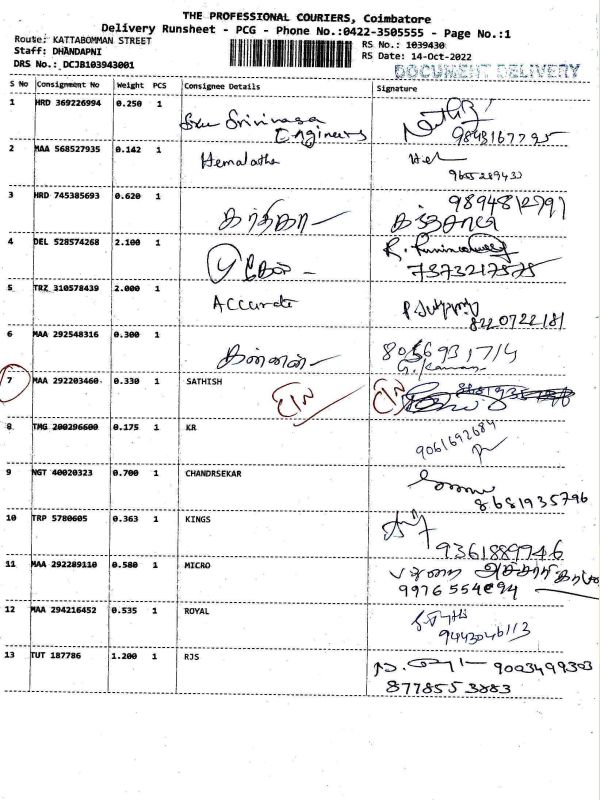 THE PROFESSIONAL COURIERS, Coimbatore
Delivery Runsheet - PCG - Phone No.:0422-3505555 - Page No.:1
Route: KATTABOMMAN STREET
Staff: DHANDAPNI
DRS No.: DCJB103943001
RS No.: 1039430
RS Date: 14-Oct-2022
DOCUMENT DELIVERY
S No Consignment No Weight PCS Consignee Details Signature
1 HRD 369226994 0.250 1 Sree Srinivasa
Engineers
9843167795
2 MAA 568527935 0.142 1 Hemalatha Hel
3 HRD 745385693 0.620 1 கார்த்திகா
4 DEL 528574268 2.100 1
7373217575
5 TRZ 310578439 2.000 1 Accurate
8220722181
6 MAA 292548316 0.300 1 கண்ணன் 8056931714
7 MAA 292203460 0.330 1 SATHISH
8 TMG 200296600 0.175 1 KR 9061692684
9 NGT 40020323 0.700 1 CHANDRSEKAR
8681935796
10 TRP 5780605 0.363 1 KINGS
9361889946
11 MAA 292289110 0.580 1 MICRO
12 MAA 294216452 0.535 1 ROYAL
9443046113
13 TUT 187786 1.200 1 RJS 9003499303
8778553883